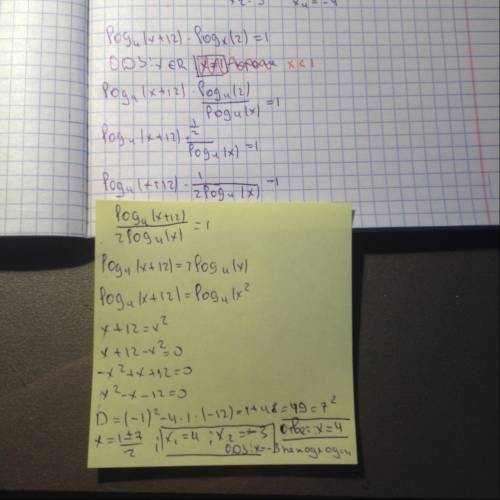 x₄ = -4
log₄(x+12) · logₓ(2) = 1
ODS: x ∈ R x<1
log₄(x+12) · log₄(2)/log₄(x) = 1
log₄(x+12) · ½/log₄(x) = 1
log₄(x+12) · 1/2log₄(x) = 1
log₄(x+12)/2log₄(x) = 1
log₄(x+12) = 2log₄(x)
log₄(x+12) = log₄(x²
x+12 = x²
x+12-x² = 0
-x²+x+12 = 0
x²-x-12 = 0
D = (-1)²-4·1·(-12) = 1+48 = 49 = 7²
x = 1±7/2 ; x₁ = 4 ; x₂ = -3 Ответ: x = 4
ODS: x = -3 неподходит